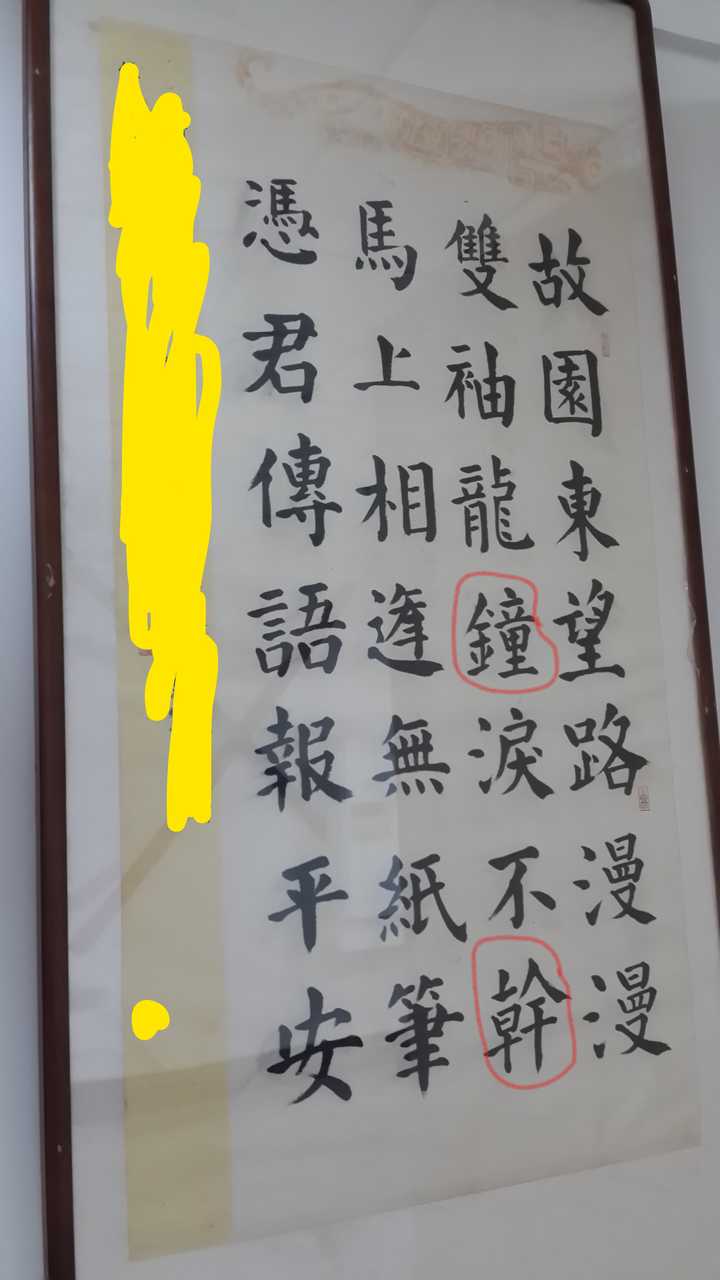 故園東望路漫漫
雙袖龍鐘淚不幹
馬上相逢無紙筆
憑君傳語報平安